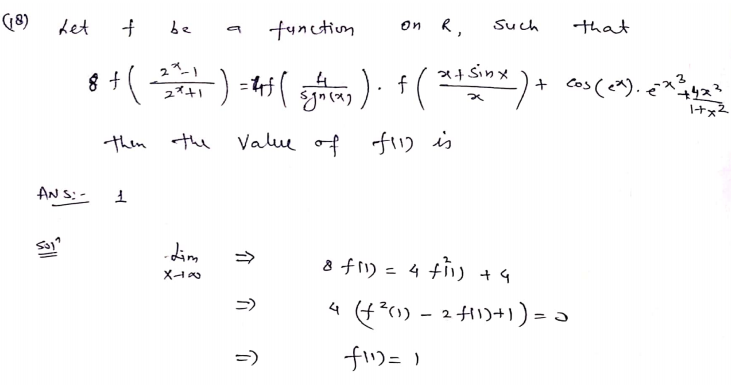 (18) Let f be a function on R, such that
8 f( (2^x-1)/(2^x+1) ) = 4f( 4/sgn(x) ) . f( (x+sinx)/x ) + cos(e^x). e^-x^3 + 4x^2/(1+x^2)
then the value of f(1) is
ANS:- 1
Sol^n
Lim x→∞ ⇒ 8 f(1) = 4 f^2(1) + 4
⇒ 4 (f^2(1) - 2 f(1)+1) = 0
⇒ f(1) = 1